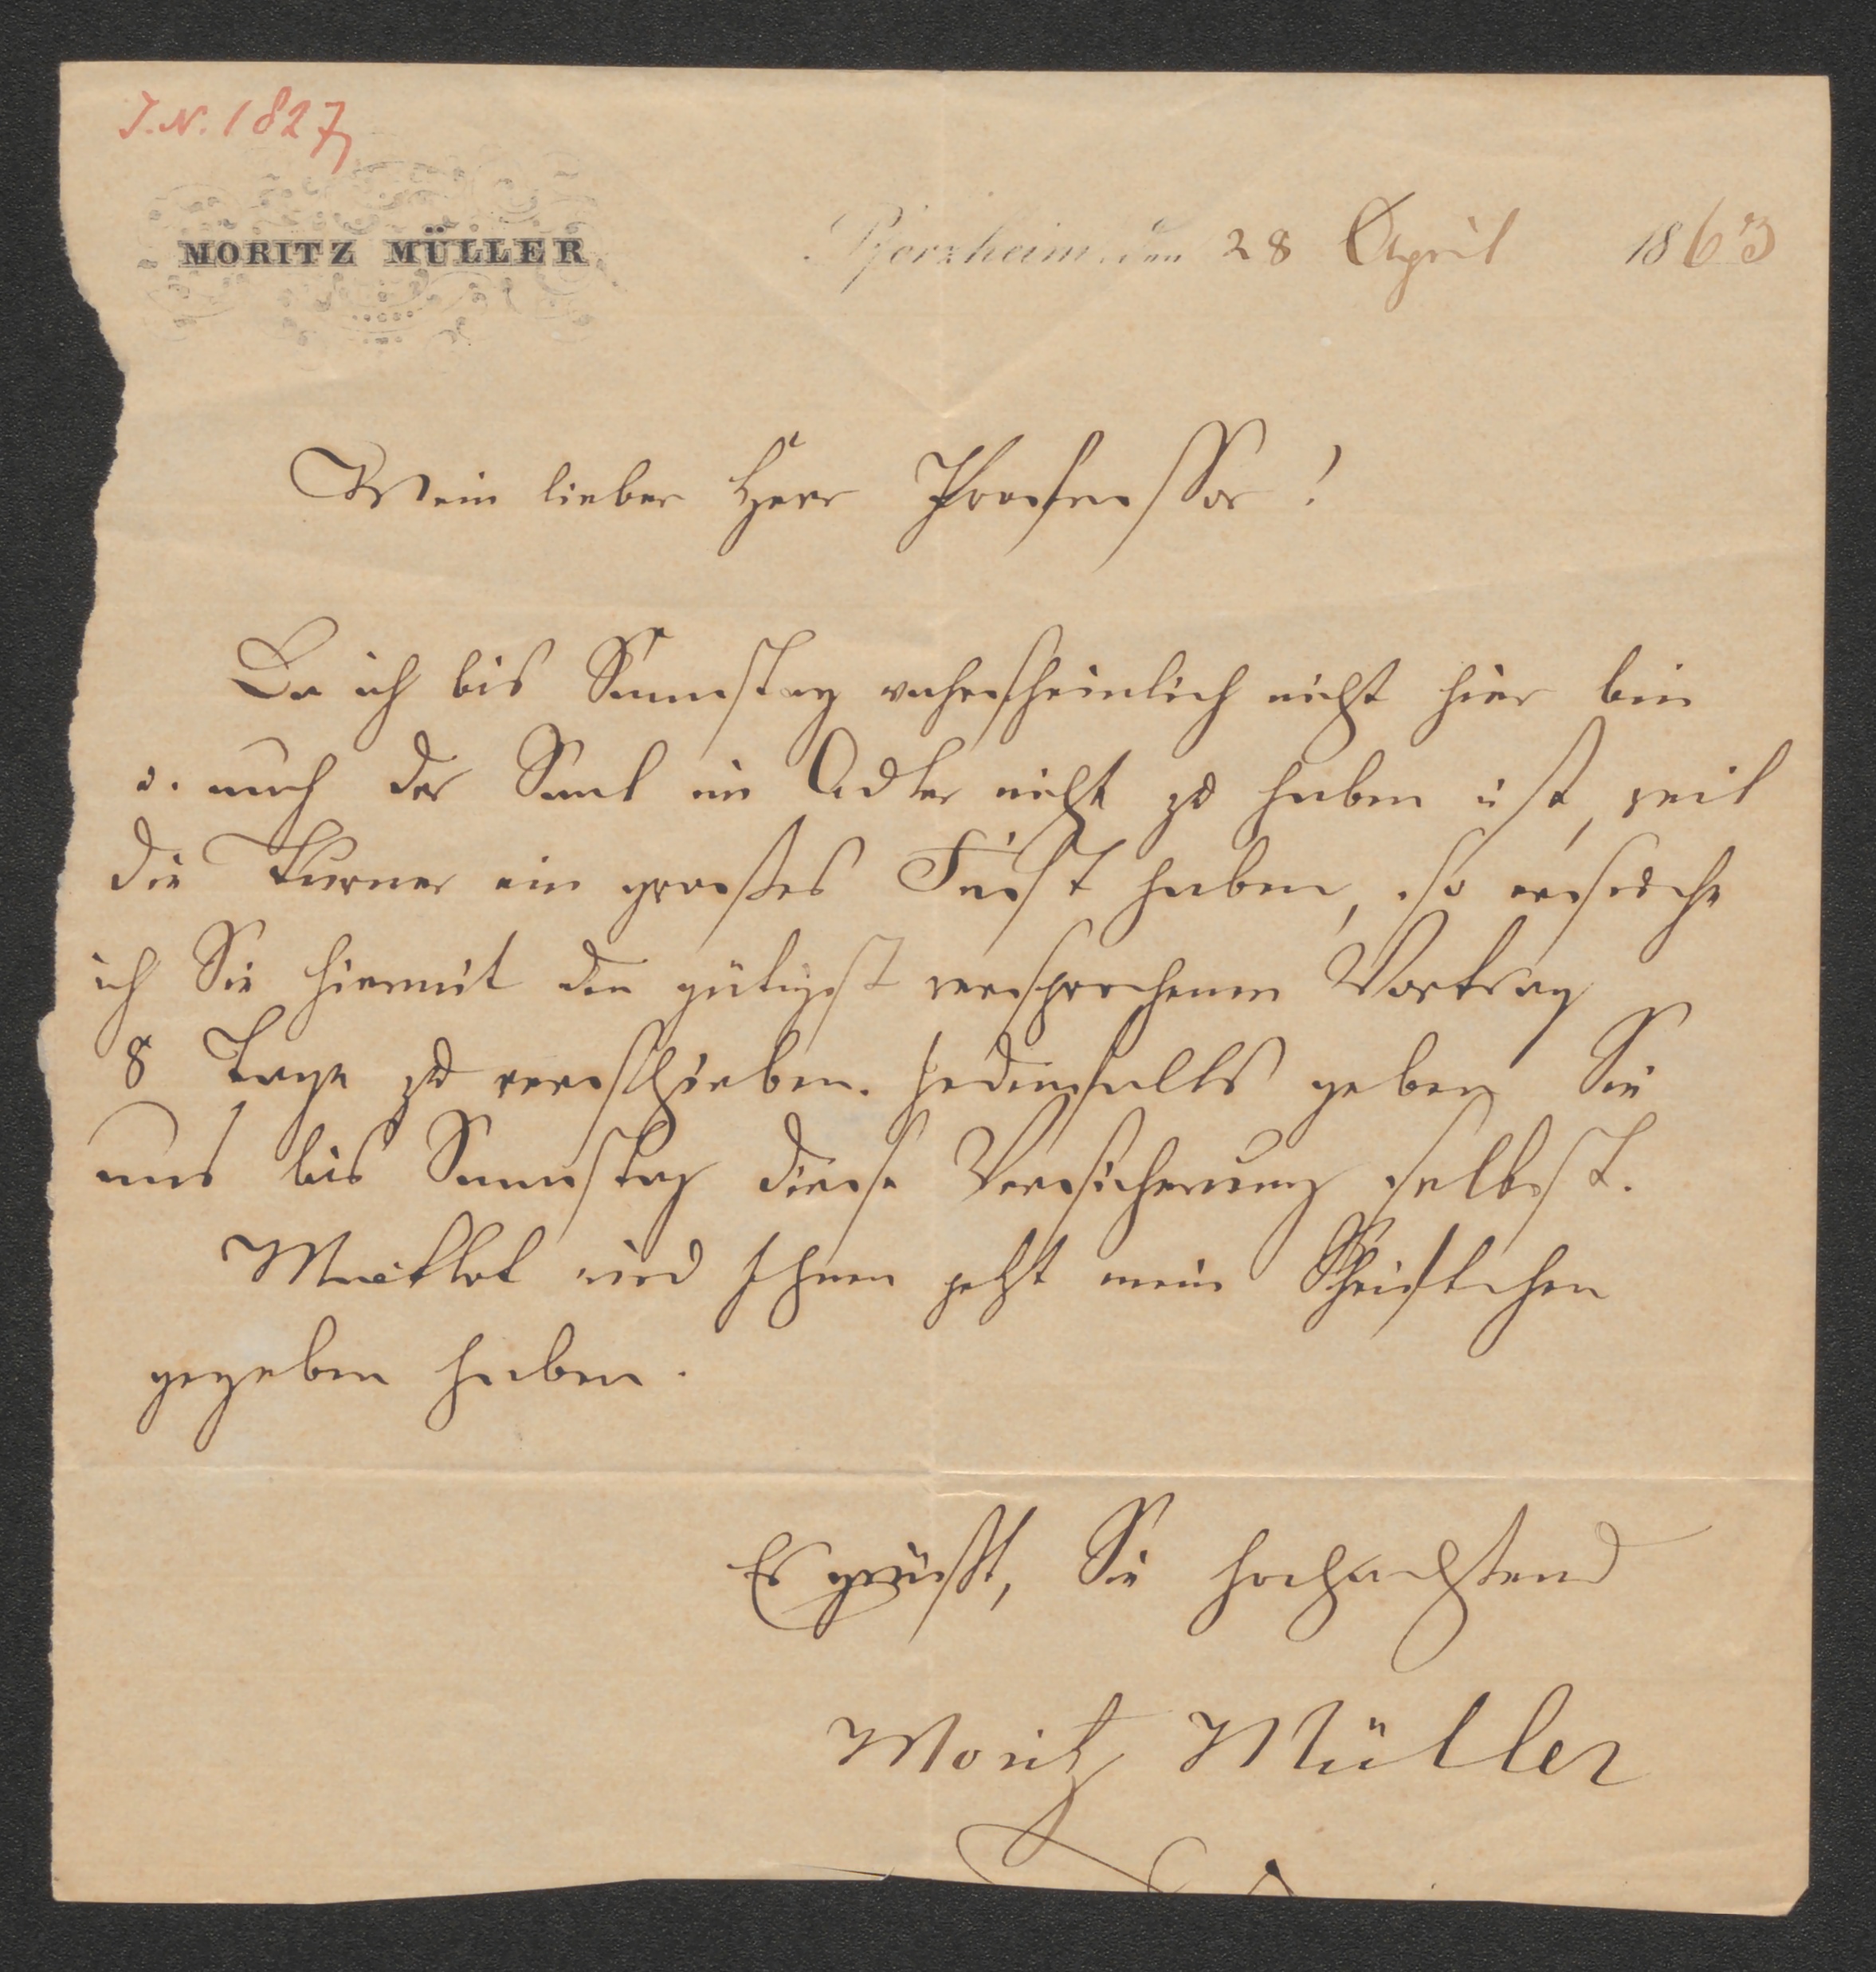 J.N. 1827
MORITZ MÜLLER
Pforzheim, den 28 April 1863
Mein lieber Herr Professor!
Da ich bis Samstag wahrscheinlich nicht hier bin
u. auch der Saal im Adler nicht zu haben ist, weil
die Turner ein großes Fest haben, so ersuche
ich Sie hiermit den gütigst versprochenen Vortrag
8 Tage zu verschieben. Jedenfalls geben Sie
uns bis Samstag diese Versicherung selbst.
wird Ihnen jetzt mein Schriftchen
gegeben haben.
Es grüßt, Sie hochachtend
Moritz Müller